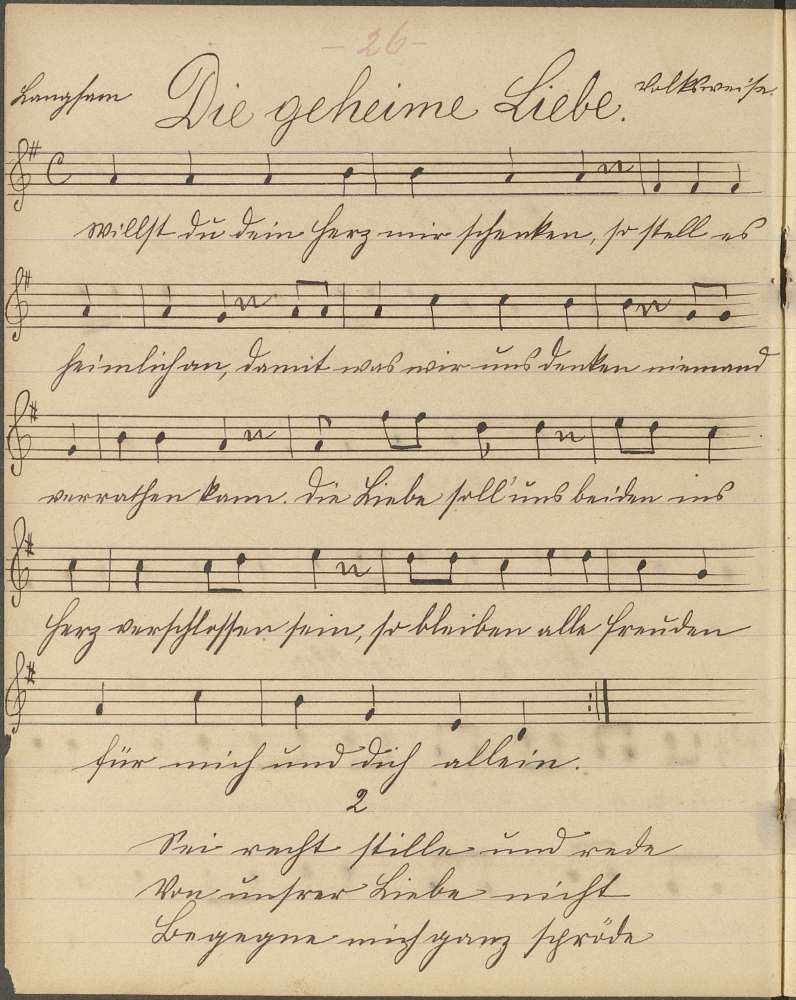 - 26 -
Langsam Die geheime Liebe. Volksweise.
Willst du dein Herz mir schenken, so stell es
heimlich an, damit was wir uns denken niemand
verrathen kann. Die Liebe soll' uns beiden ins
Herz verschlossen sein, so bleiben alle Freuden
für mich und dich allein.
2
Sei recht stille und rede
Von unsrer Liebe nicht
Begegne mich ganz spröde